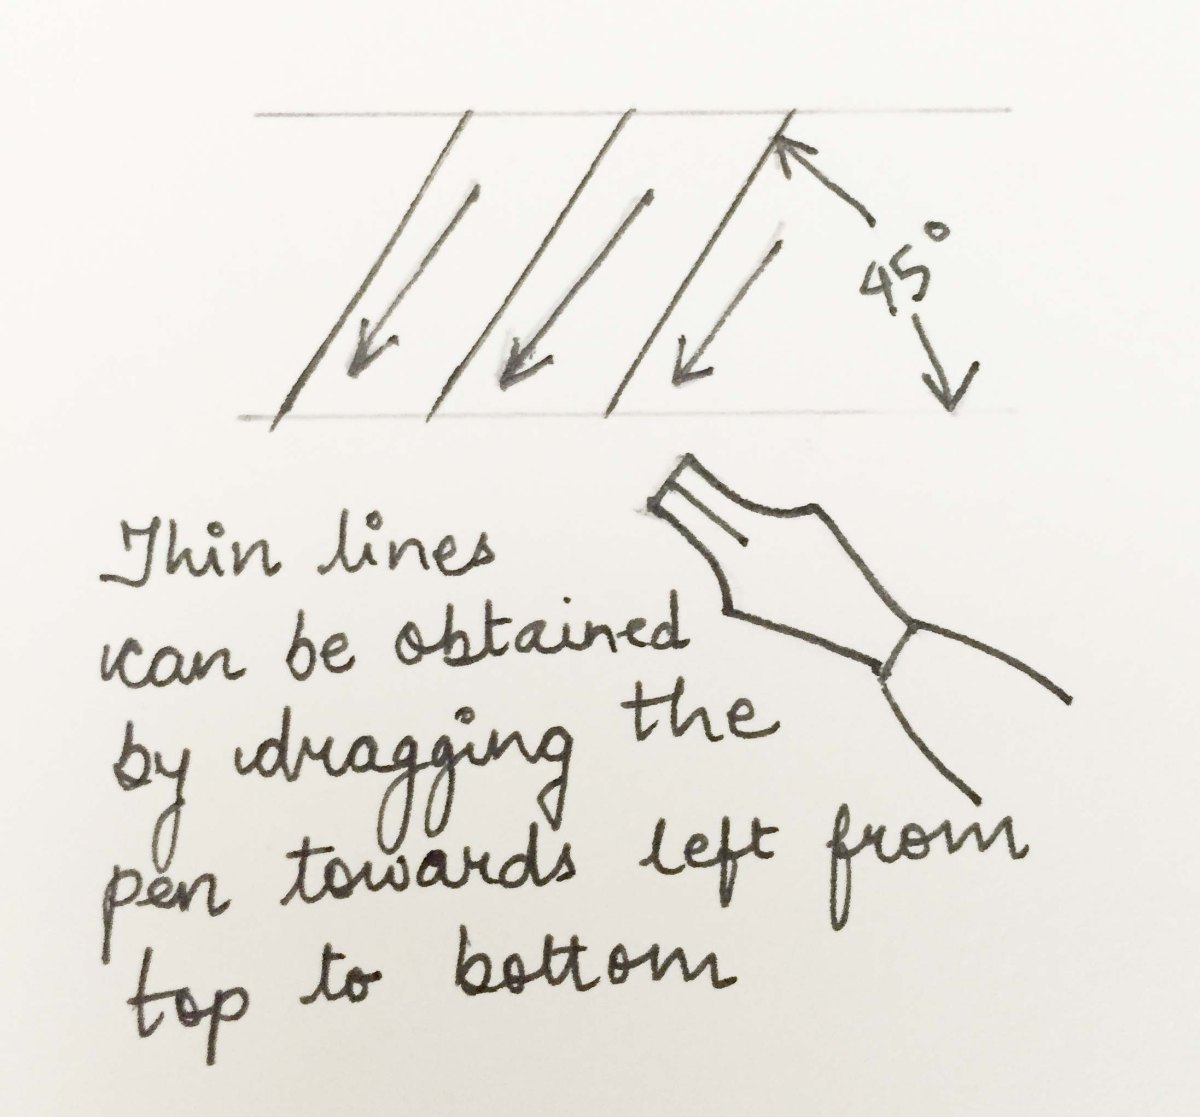 45°
Thin lines
can be obtained
by dragging the
pen towards left from
top to bottom